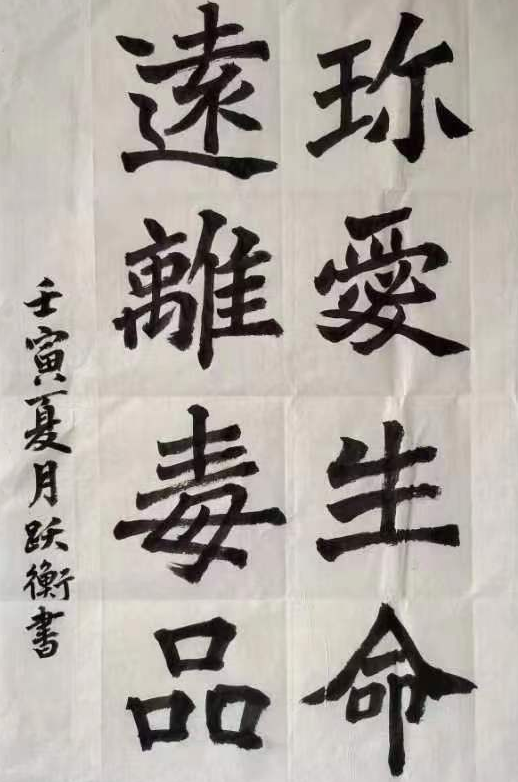 珎愛生命
遠離毒品
壬寅夏月跃衡書